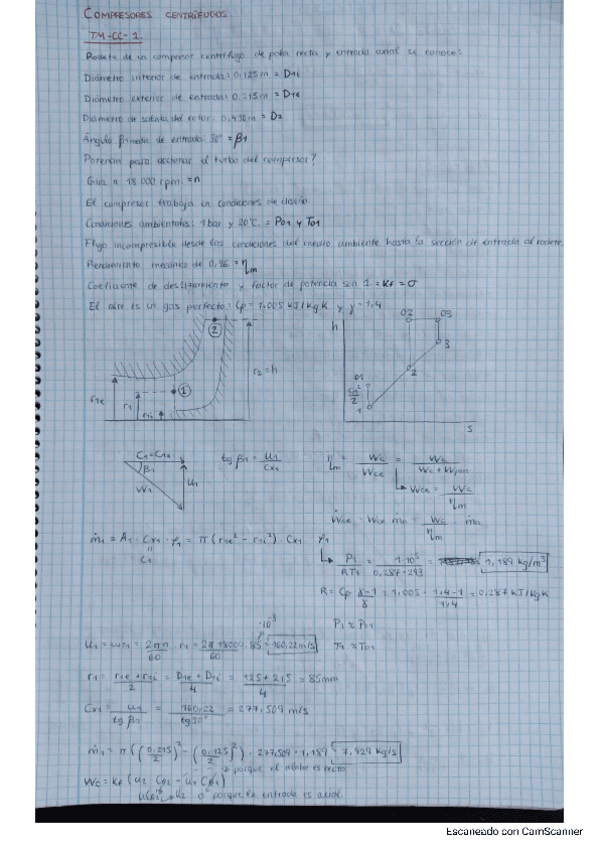 COMPRESORES CENTRÍFUGOS
TM-CC-1.
Rodete de un compresor centrífugo de pala recta y entrada axial se conoce:
Diámetro interior de entrada: 0,125 m = D1i
Diámetro exterior de entrada: 0,215 m = D1e
Diámetro de salida del rotor: m = D2
Ángulo β medio de entrada 30° = β1
Potencia para accionar el turbo del compresor?
Gira a 18 000 rpm = n
El compresor trabaja en condiciones de diseño
Condiciones ambientales: 1 bar y 20°C = P01 y T01
Flujo incompresible desde las condiciones del medio ambiente hasta la sección de entrada al rodete.
Rendimiento mecánico de 0,96 = ηm
Coeficiente de deslizamiento y factor de potencia son 1 = Kf = σ
El aire es un gas perfecto: Cp = 1.005 kJ/kg K y γ = 1.4
2
r2 = h
r1e
r1
r1i
1
h
02
03
3
2
01
C1²/2
1
s
C1 = C1x
β1
W1
U1
tg β1 = U1/Cx1
ηm = Wc/Wce = Wc/(Wc + Wpm)
Wce = Wc/ηm
Ẇce = Wce ṁa = Wc/ηm · ṁa
ṁ1 = A1 · Cx1 · ρ1 = π (r1e² - r1i²) · Cx1 ρ1
C1
P1/RT1 = 1·10⁵/0,287·293 = 1,189 kg/m³
R = Cp (γ-1)/γ = 1.005 · (1.4-1)/1.4 = 0,287 kJ/kgK
P1 ≈ P01
T1 ≈ T01
U1 = ωr1 = 2πn/60 · r1 = 2π 18000/60 · 85 ·10⁻³ = 160,22 m/s
r1 = (r1e + r1i)/2 = (D1e + D1i)/4 = (125 + 215)/4 = 85mm
Cx1 = U1/tg β1 = 160,22/tg 30° = 277,509 m/s
ṁ1 = π ((0,215/2)² - (0,125/2)²) · 277,509 · 1,189 = 7,929 kg/s
porque el álabe es recto
Wc = Kf (U2 Cθ2 - U1 Cθ1)
U2 0 porque la entrada es axial
Escaneado con CamScanner